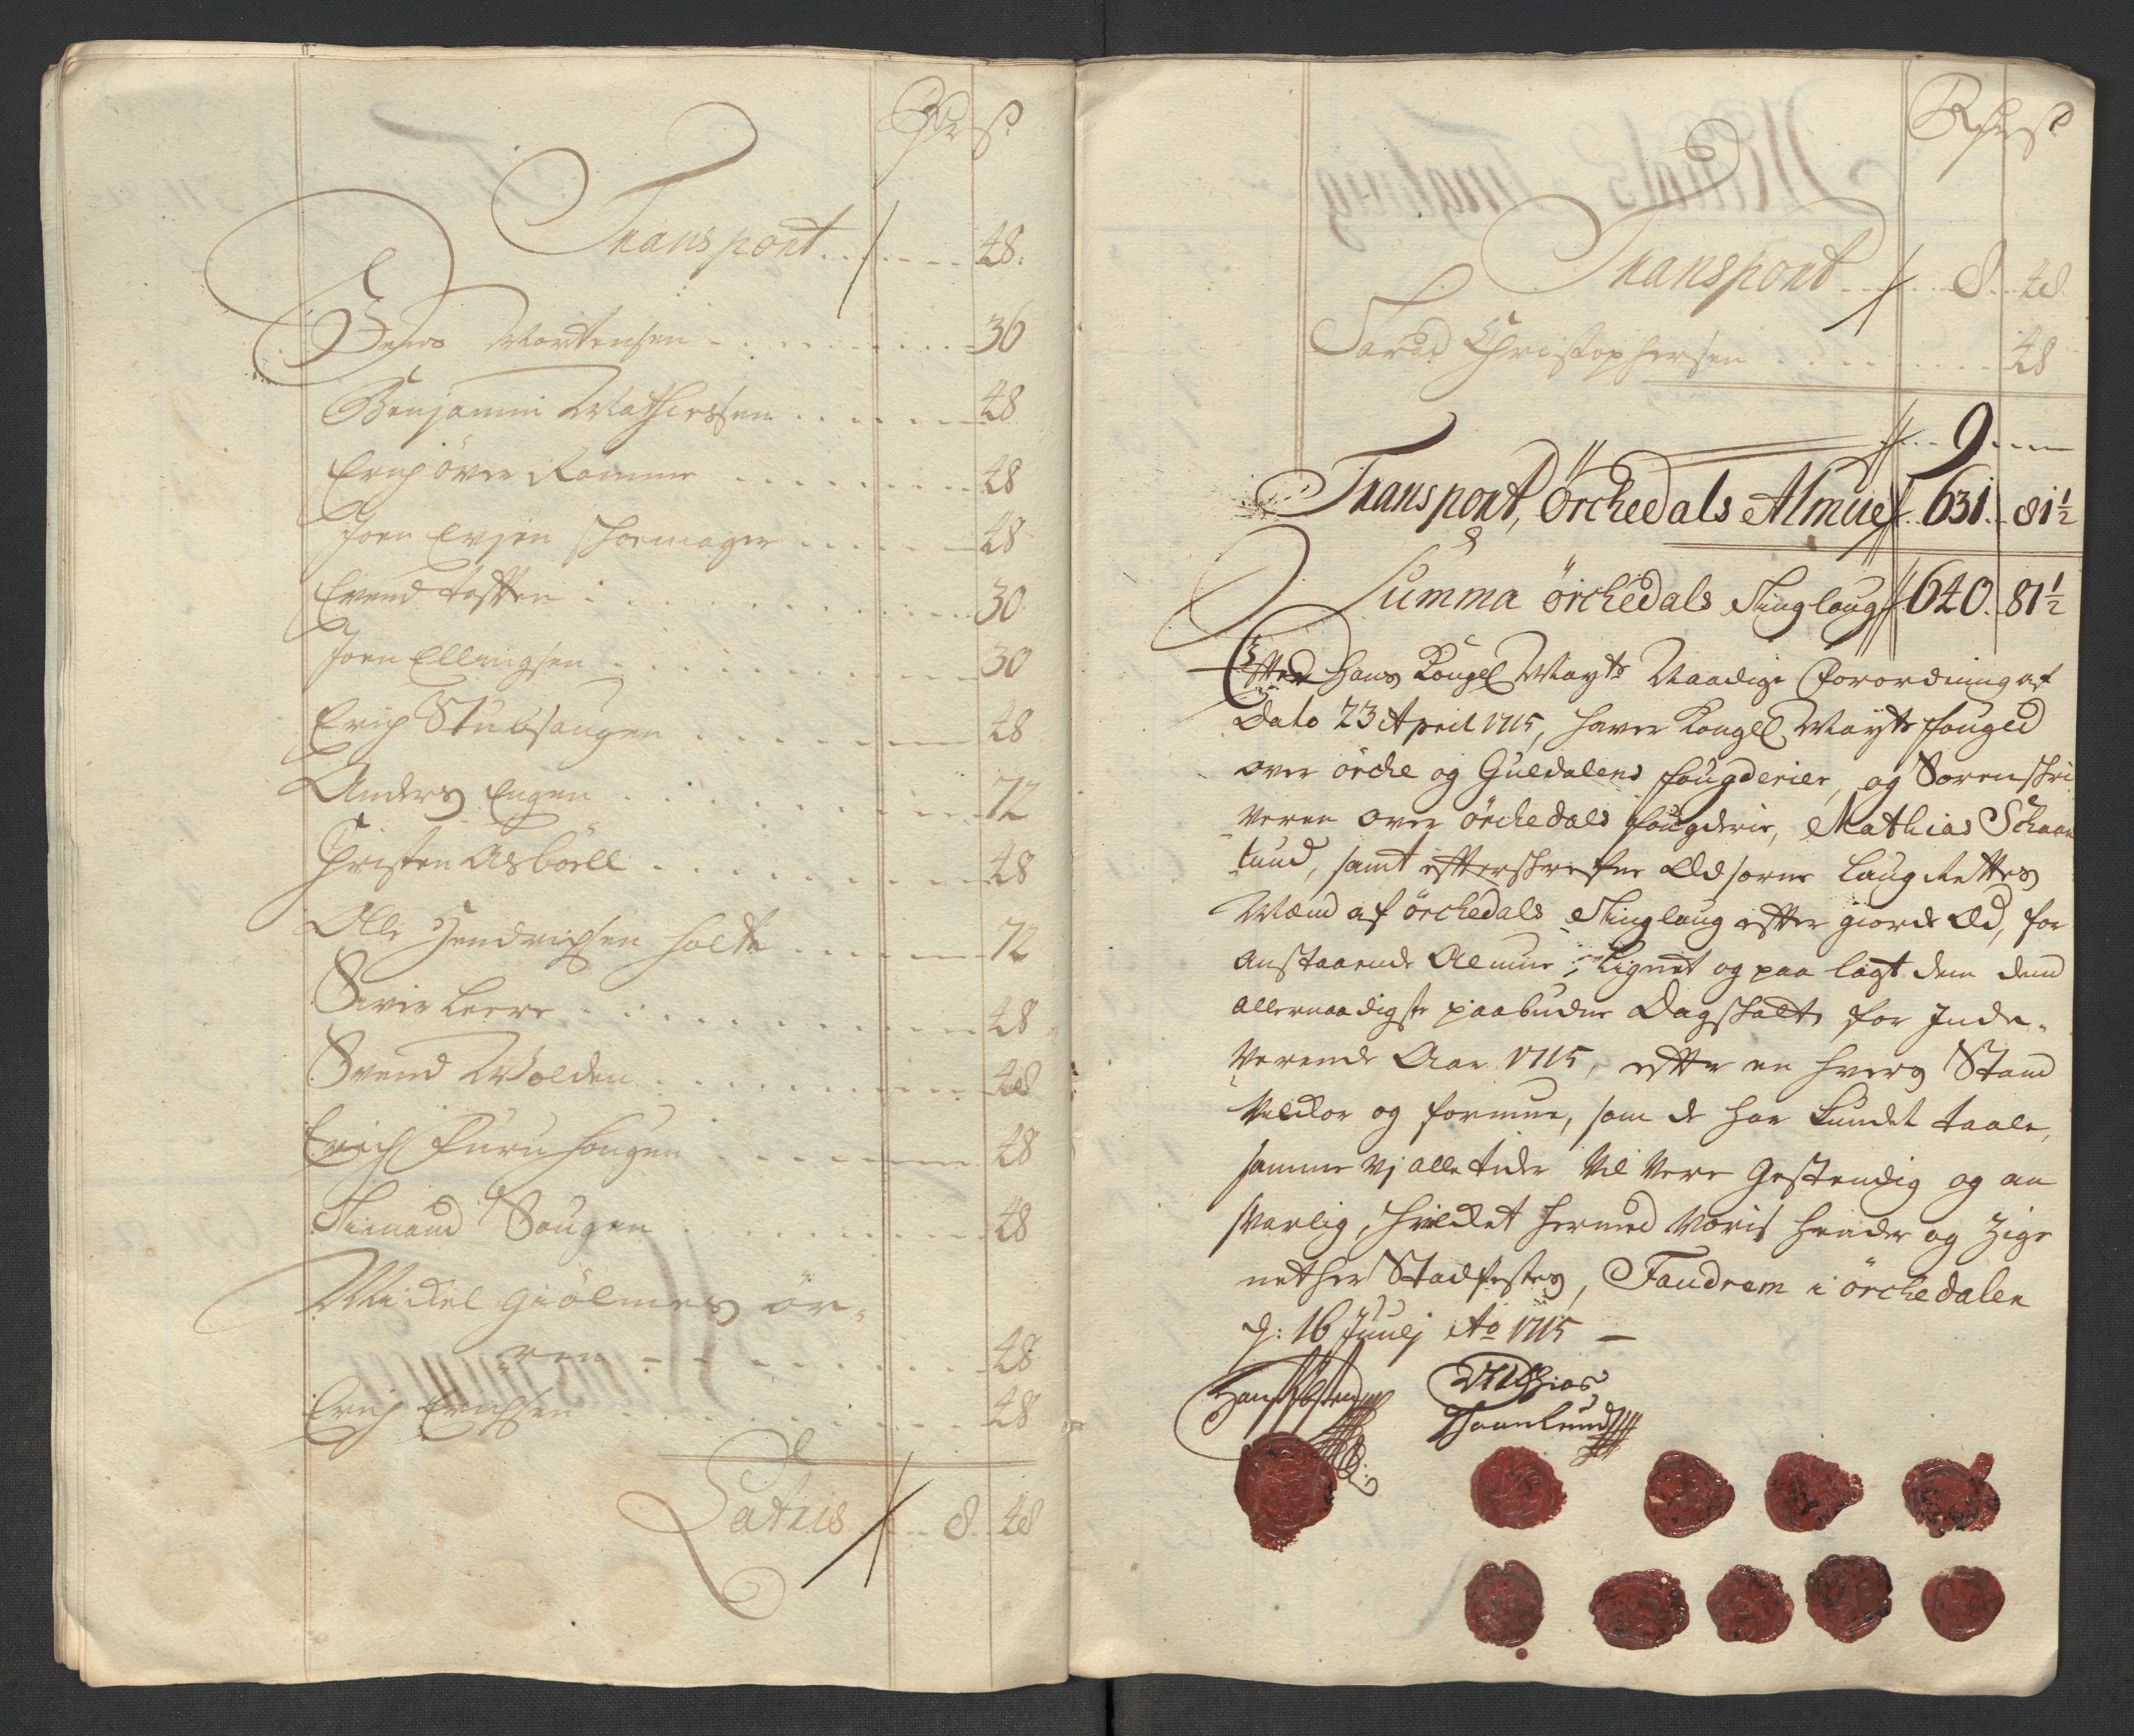 Rdr ß
Transport 48
Jens Mortensen 36
Benjamin Mathiessen 48
Erich över Romme 48
Joen Evjen Schomager 48
Evend 30
Joen Ellingsen 30
Erich Stubhaugen 48
Anders Engen 72
Christen Asböell 48
Olle Hendrichsen Holte 72
Siver Leere 48
Svend Wolden 48
Erich Furuhougen 48
Haugen 48
Mickel Giölmes ör-
ren 48
Erich Erichsen 48
Latus 8 48
Rdr ß
Transport 8 48
Christophersen 48
9
Transport, Örchedals Almue 631 81½
Summa Örchedals Tinglaug 640 81½
Efter Hans Kongel Mayts Naadige Forordning af
Dato 23 April 1715, haver Kongel Mayts fouged
over örche og Guldalens fougderier, og Sorenskri
veren over örchedals fougderie, Mathias Schaan
lund, samt efterskrefne Edsorne Laug Rettes
Mænd af örchedals Tinglaug efter giorde Ed, for
anstaaende Almue, Lignet og paa lagt dem dend
allernaadigste paabudne Dagskatt for Inde-
verende Aar 1715, efter en hvers Stand
Vilckor og formue, som de har kundet taale,
samme vj alletider vil vere Gestendig og an
svarlig, hvilcket hermed voris hender og Zig
nether Stadfestes, Fandrem i örchedalen
d: 16 Junij Ao 1715
Mathias
Schaanlund